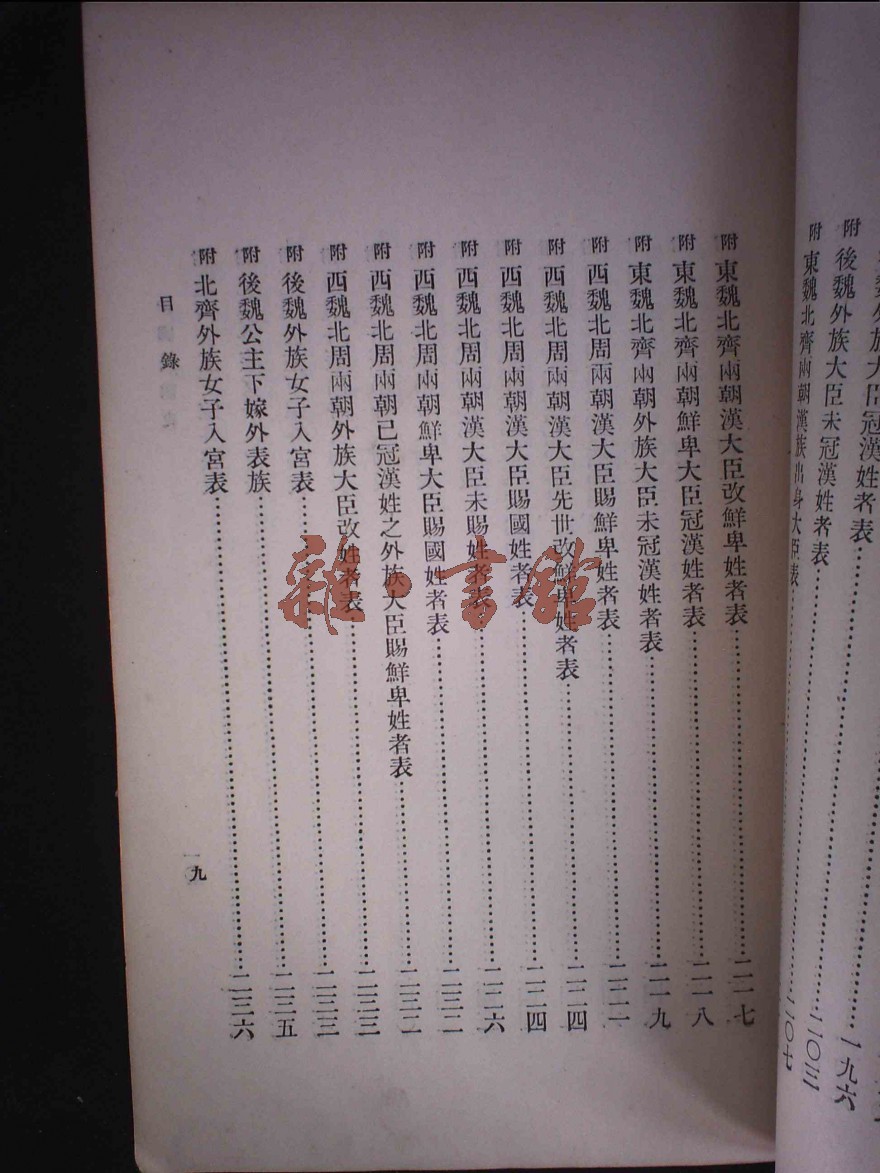 魏外族大臣冠漢姓者表……一九六
附 後魏外族大臣未冠漢姓者表……二〇三
附 東魏北齊兩朝漢族出身大臣表……二〇七
附 東魏北齊兩朝漢大臣改鮮卑姓者表……二一七
附 東魏北齊兩朝鮮卑大臣冠漢姓者表……二一八
附 東魏北齊兩朝外族大臣未冠漢姓者表……二一九
附 西魏北周兩朝漢大臣賜鮮卑姓者表……二二一
附 西魏北周兩朝漢大臣先世改鮮卑姓者表……二二四
附 西魏北周兩朝漢大臣賜國姓者表……二二四
附 西魏北周兩朝漢大臣未賜姓者表……二二六
附 西魏北周兩朝鮮卑大臣賜國姓者表……二三二
附 西魏北周兩朝已冠漢姓之外族大臣賜鮮卑姓者表……二三二
附 西魏北周兩朝外族大臣改姓者表……二三三
附 後魏外族女子入宮表……二三三
附 後魏公主下嫁外表族……二三五
附 北齊外族女子入宮表……二三六
目錄
一九
雜·書館